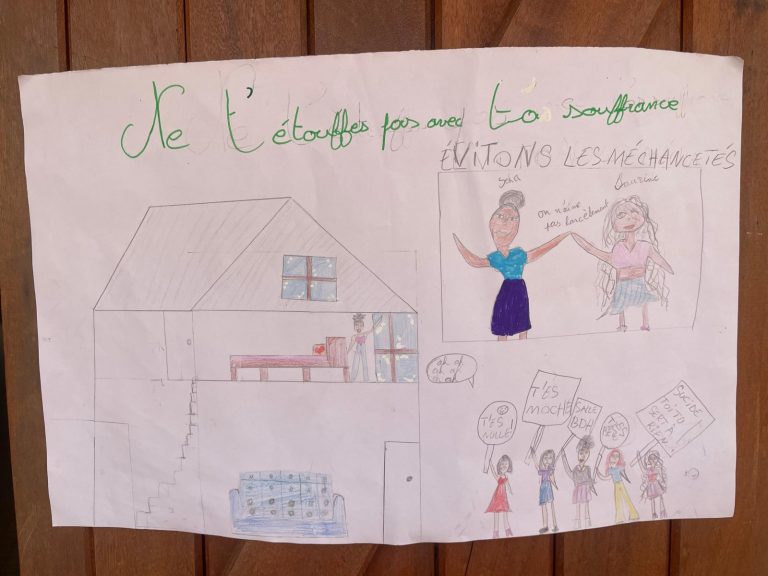 Ne t'étouffes pas avec ta souffrance
ÉVITONS LES MÉCHANCETÉS
on n'aime
pas harcèlement
ah ah
ah ah
T'ES
NULLE!
T'ES
MOCHE
SALE
BDH
SUCIDE
TOI TU
SERT
RIEN!